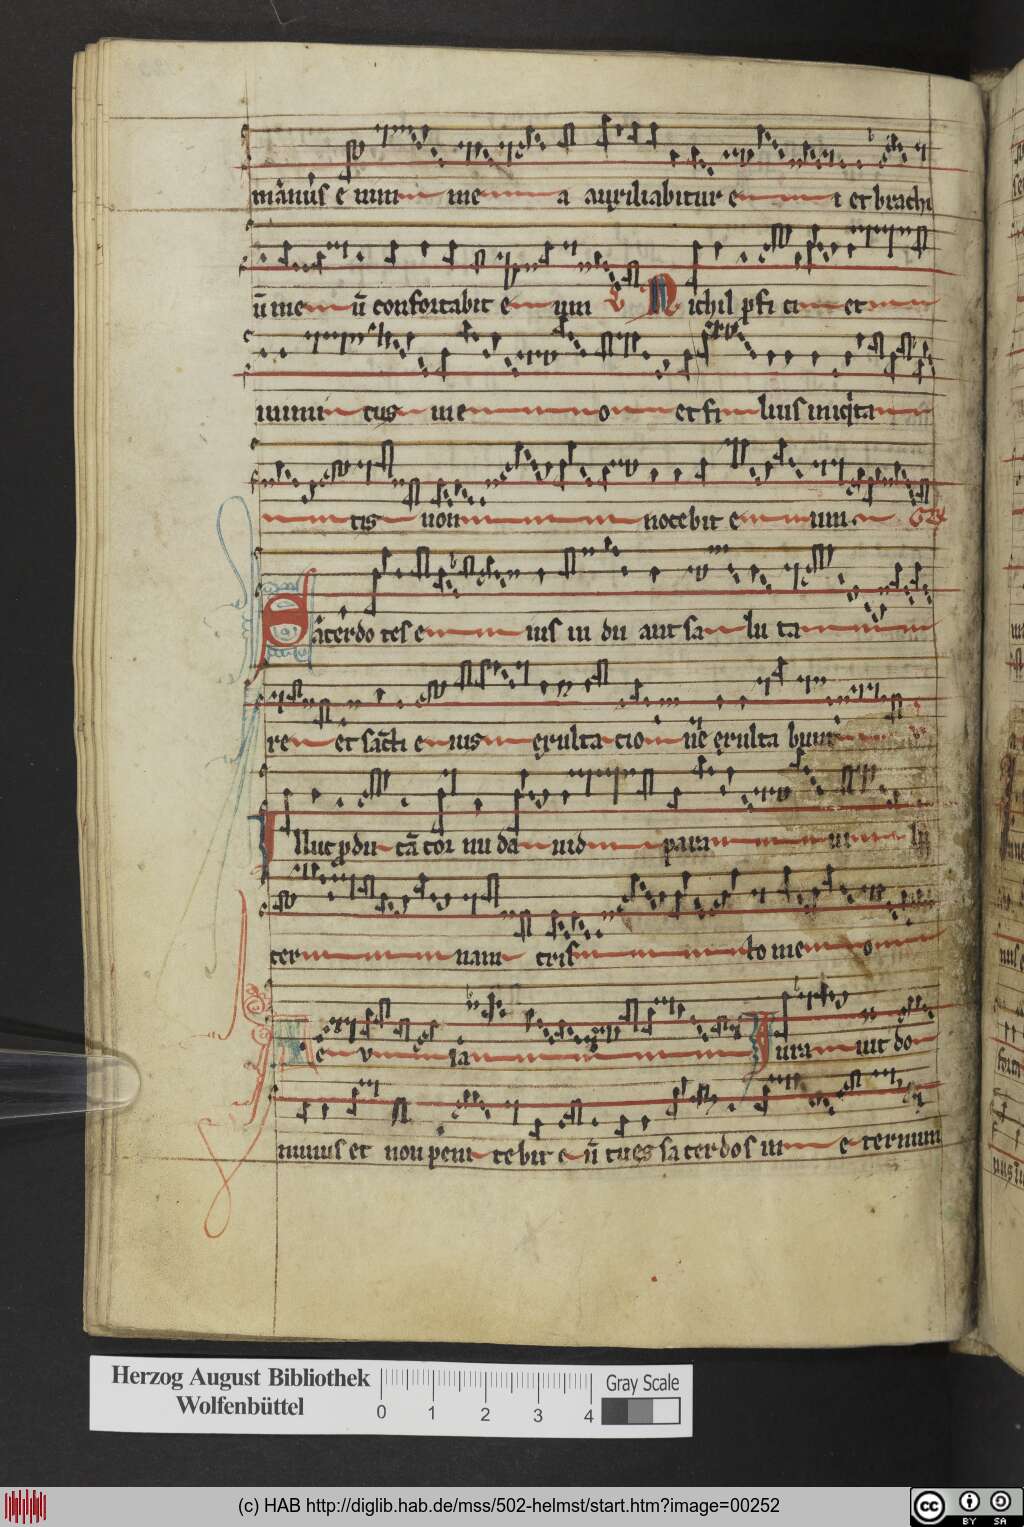 manus e nim me a auxiliabitur e i et brachi
ū me ū confortabit e um V Nichil ꝓfi ci et
inimi cus me o et fi lius iniqita
tis non nocebit e um
Sacerdo tes e ius in du ant sa lu ta
re et sācti e ius exulta cio ne exulta bunt
Illuc ꝓdu cā cor nu da uid para ui lu
cer nam cris to me o
e v ia Iura uit do
minus et non peni te bit e ū tu es sa cer dos in e ternum
Herzog August Bibliothek
Wolfenbüttel
0 1 2 3 4
Gray Scale
(c) HAB http://diglib.hab.de/mss/502-helmst/start.htm?image=00252
cc BY SA